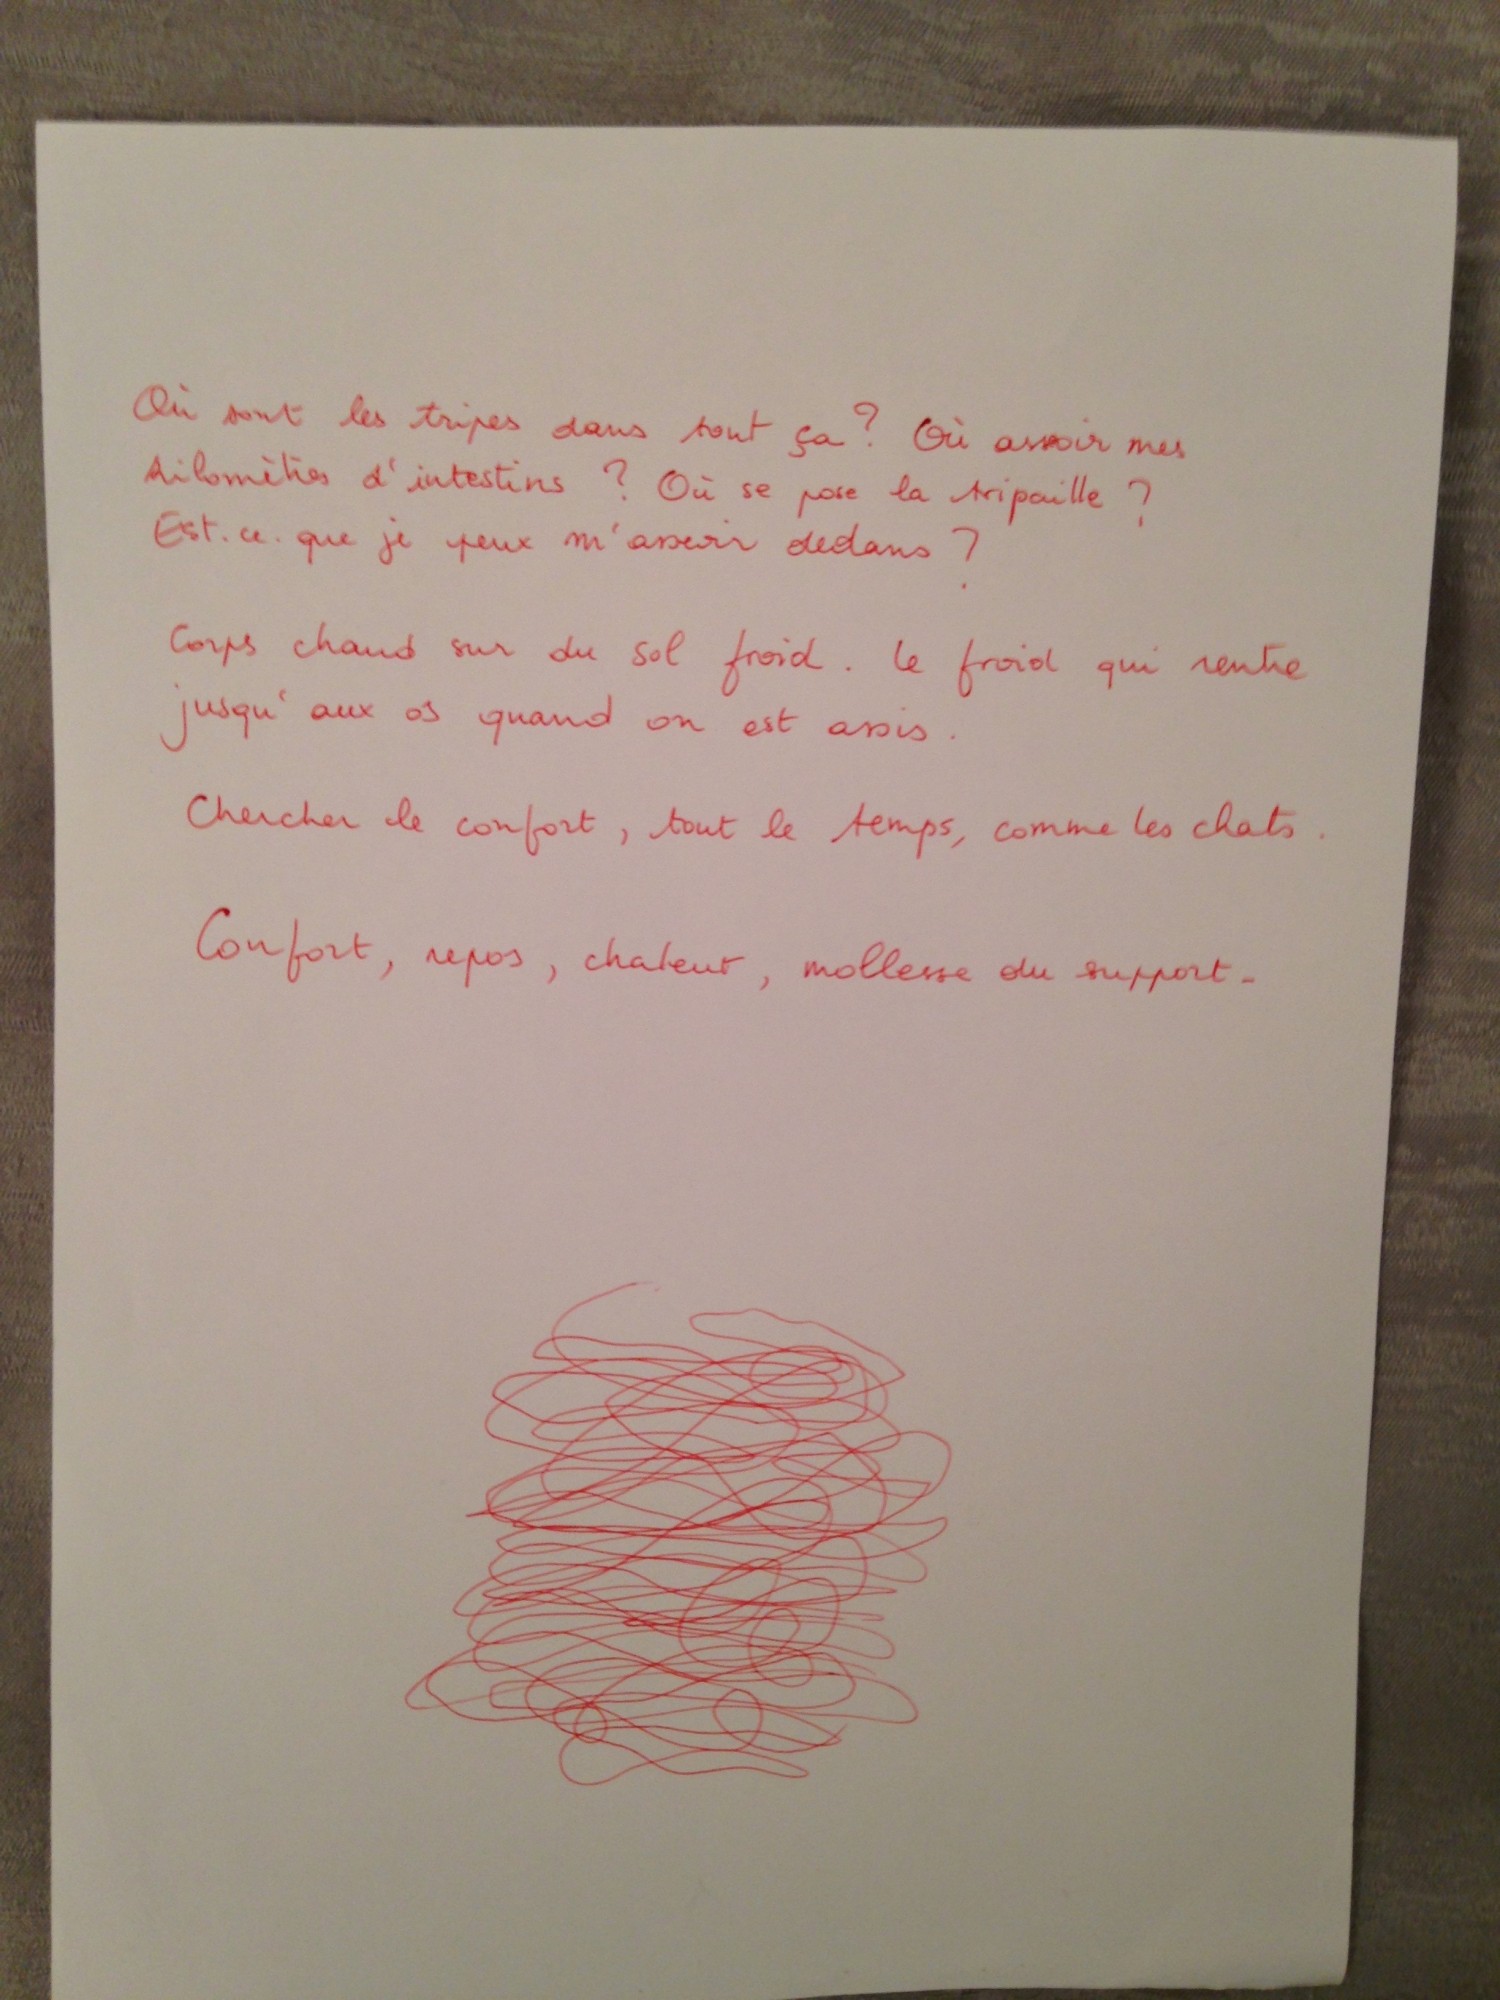 Où sont les tripes dans tout ça ? Où assoir mes
kilomètres d'intestins ? Où se pose la tripaille ?
Est-ce-que je peux m'asseoir dedans ?
Corps chaud sur du sol froid. Le froid qui rentre
jusqu'aux os quand on est assis.
Chercher le confort, tout le temps, comme les chats.
Confort, repos, chaleur, mollesse du support.